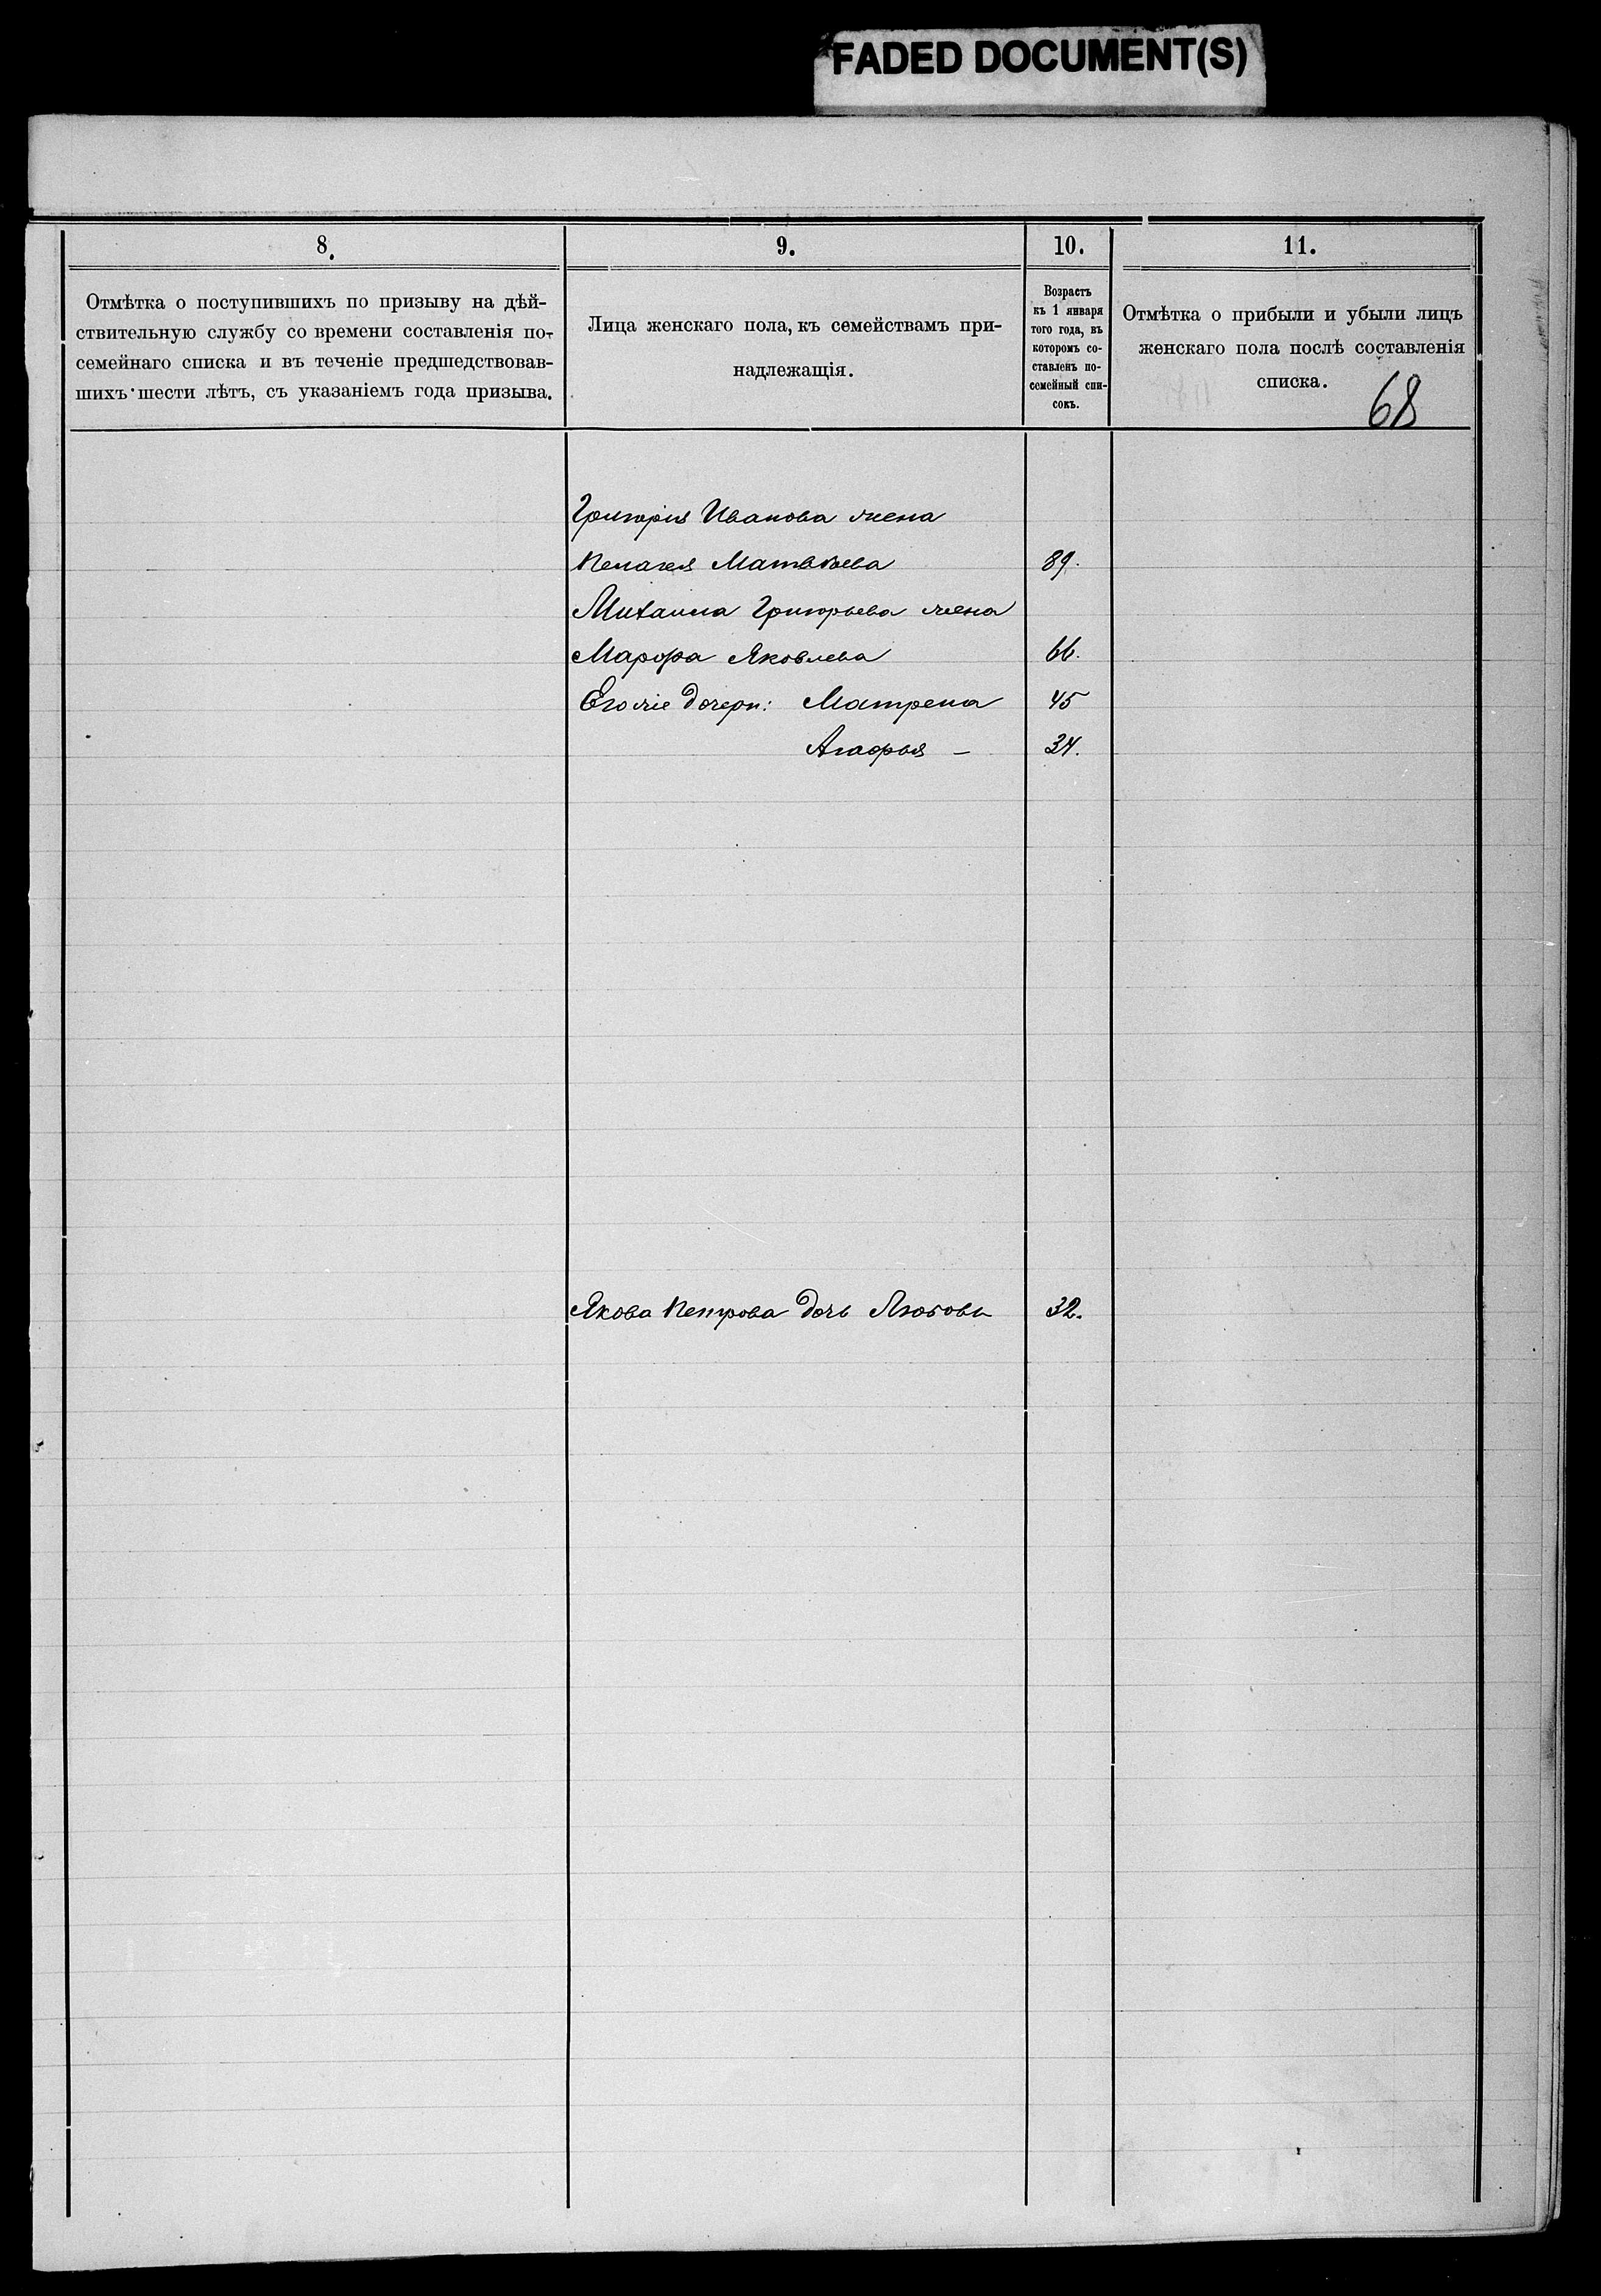 FADED DOCUMENT(S)
8.
9.
10.
11.
Отмѣтка о поступившихъ по призыву на дѣй-
ствительную службу со времени составленія по-
семейнаго списка и въ теченіе предшедствовав-
шихъ шести лѣтъ, съ указаніемъ года призыва.
Лица женскаго пола, къ семействамъ при-
надлежащія.
Возрастъ
къ 1 января
того года, въ
которомъ со-
ставленъ по-
семейный спи-
сокъ.
Отмѣтка о прибыли и убыли лицъ
женскаго пола послѣ составленія
списка.
68
Григорія Иванова жена
Пелагея Матвѣева 89.
Михаила Григорьева жена
Марфа Яковлева 66.
Его же дочери: Матрена 45
Агафья — 34.
Якова Петрова дочь Любовь 32.